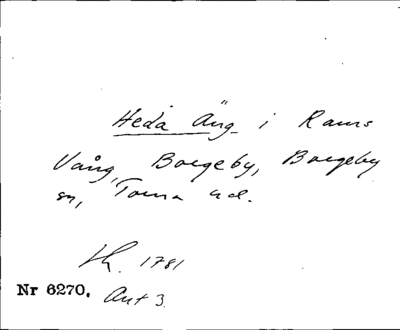 Heda Äng i Rams
Vång, Borgeby, Borgeby
sn, Torna hd.
Lh. 1781
Nr 6270. Aut 3.